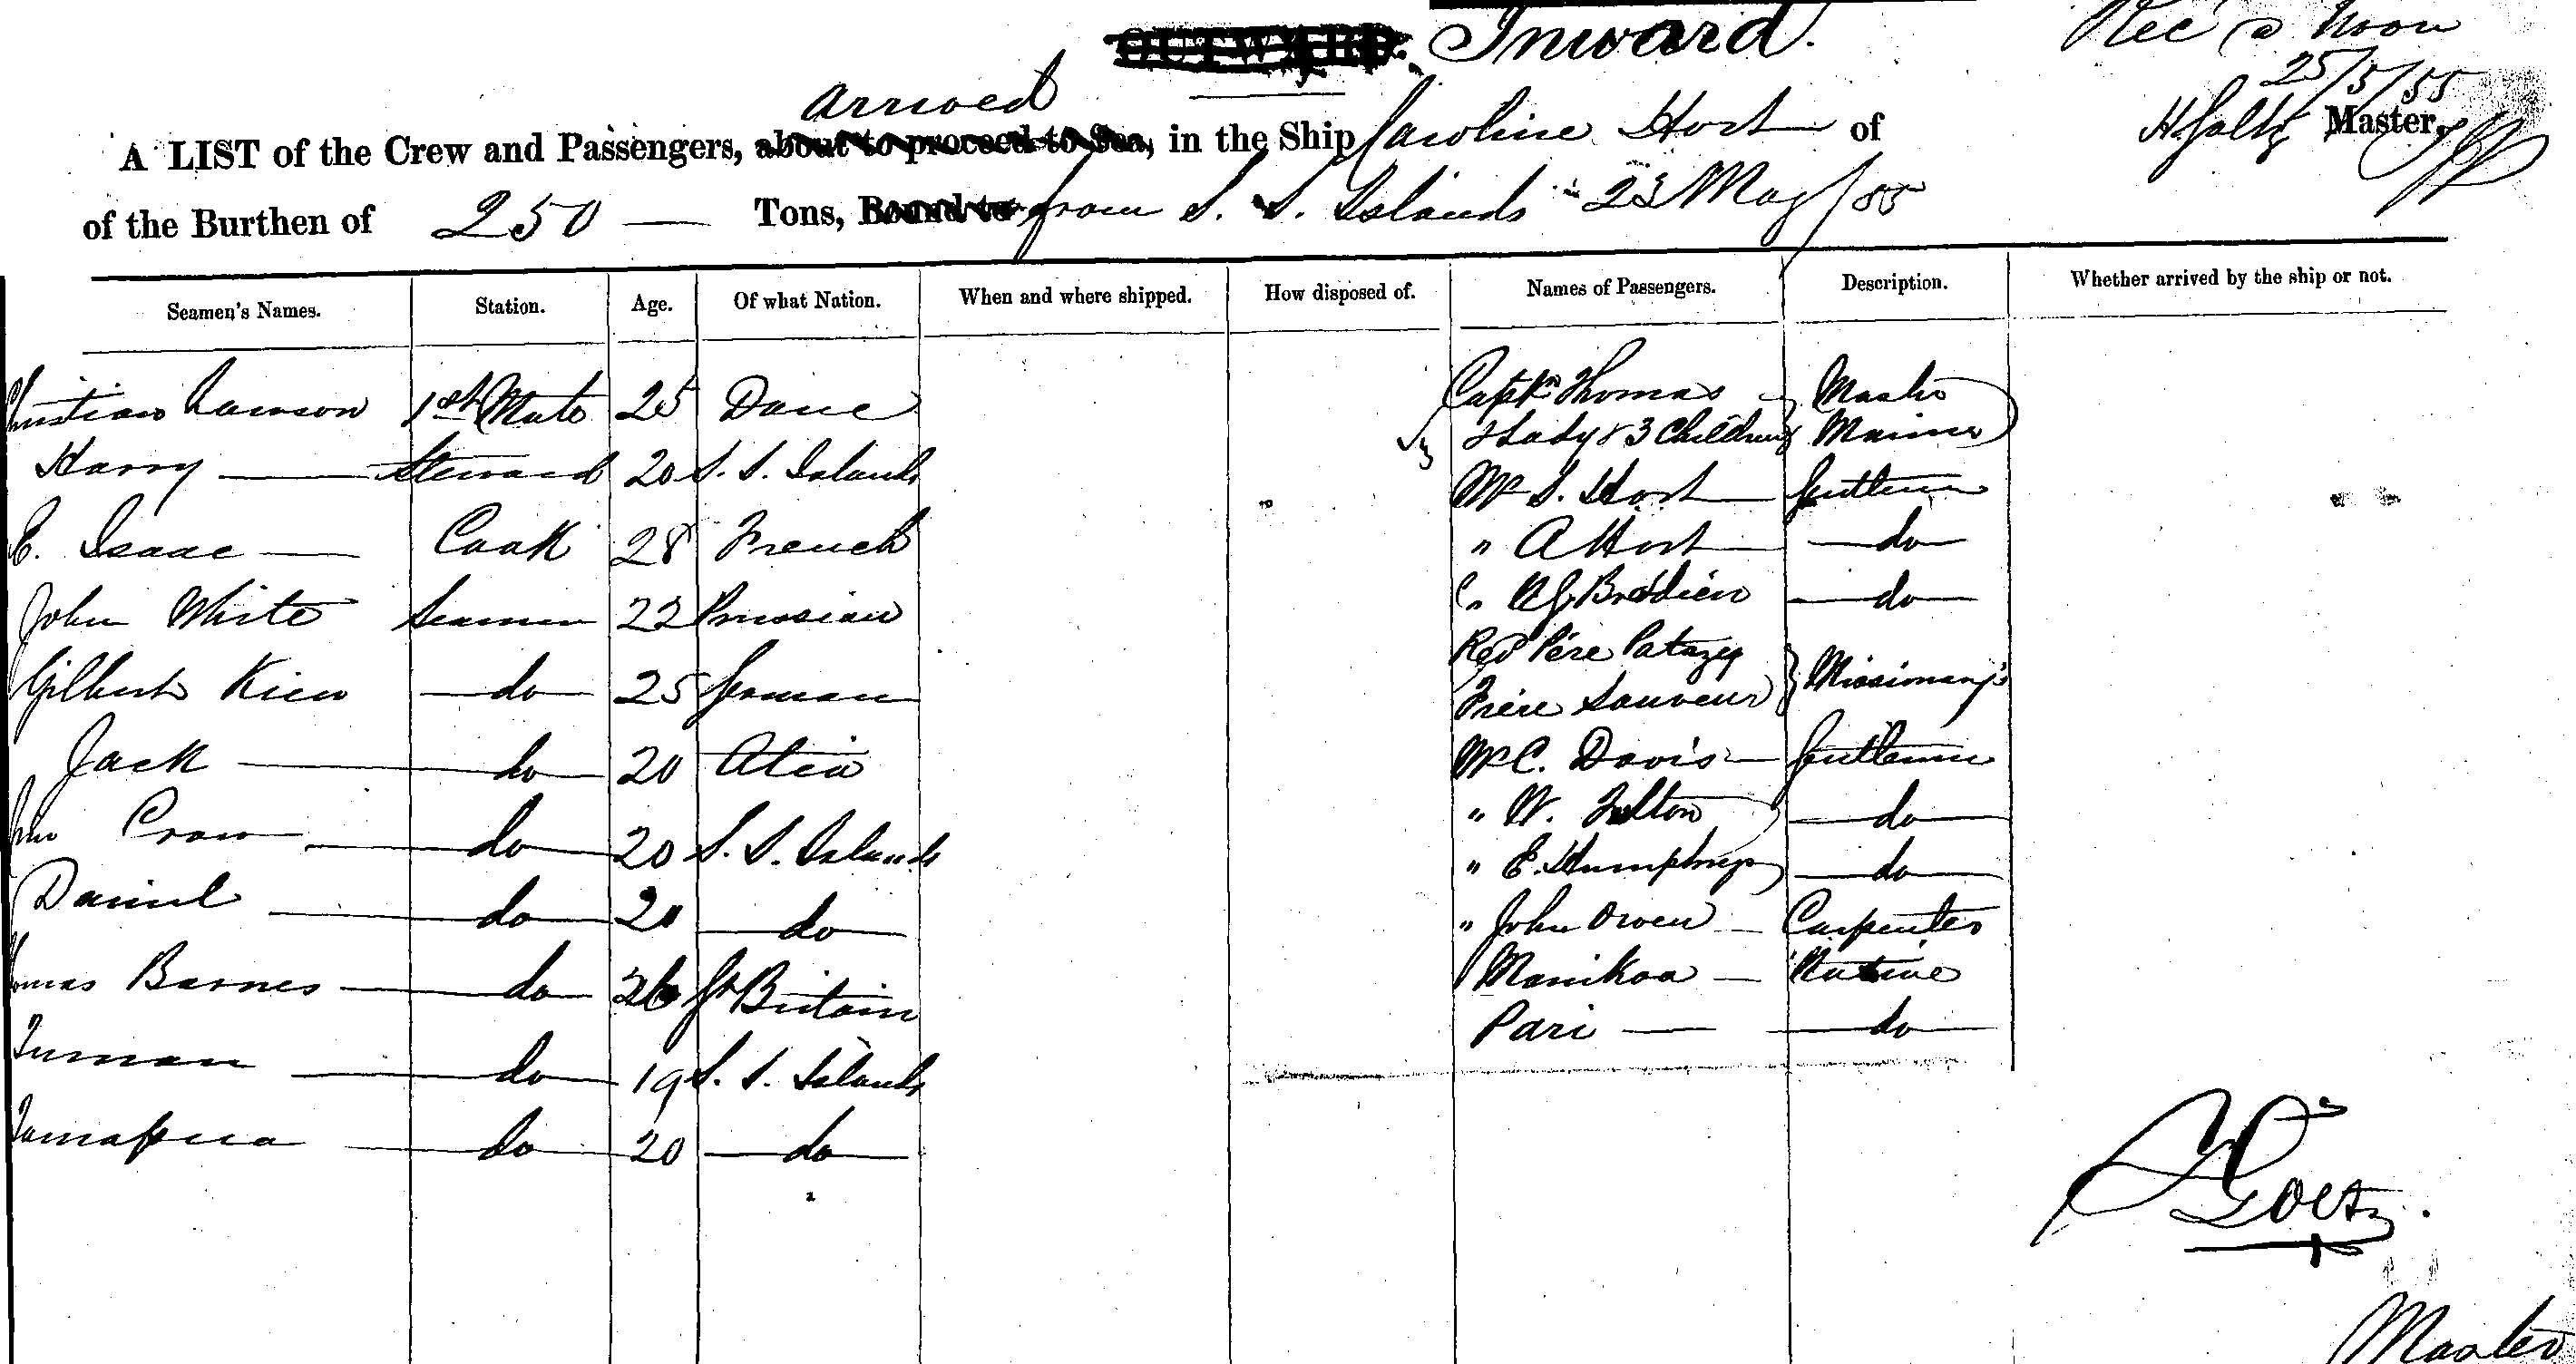 OUTWARD. Inward.
Rec @ Noon
25/5/55
arrived
A LIST of the Crew and Passengers, about to proceed to Sea, in the Ship Caroline Hort of Master,
of the Burthen of 250 — Tons, Bound to from S. S. Islands 23 May/55
Seamen's Names. Station. Age. Of what Nation. When and where shipped. How disposed of. Names of Passengers. Description. Whether arrived by the ship or not.
Christian Lawson 1st Mate 25 Dane Captn Thomas Master
& Lady & 3 Children Mariner
Harry — Steward 20 S. S. Islands Mr S. Hort — Gentleman
E. Isaac — Cook 28 French " A Hort — do
John White Seaman 22 Prussian " Brodien — do
Revd Père
Gilbert Kien — do 25 German Frère Sauveur Missionary's
Jack — do 20 Mr C. Davis — Gentleman
John Crow — do 20 S. S. Islands " W. — do
" E. Humphreys — do
Daniel — do 20 — do " John Owen — Carpenter
Thomas Barnes — do 26 Gt Britain Manikoa — Native
Pari — do
Tuman — do 19 S. S. Islands
Tamapua — do 20 — do
Goltz.
Master